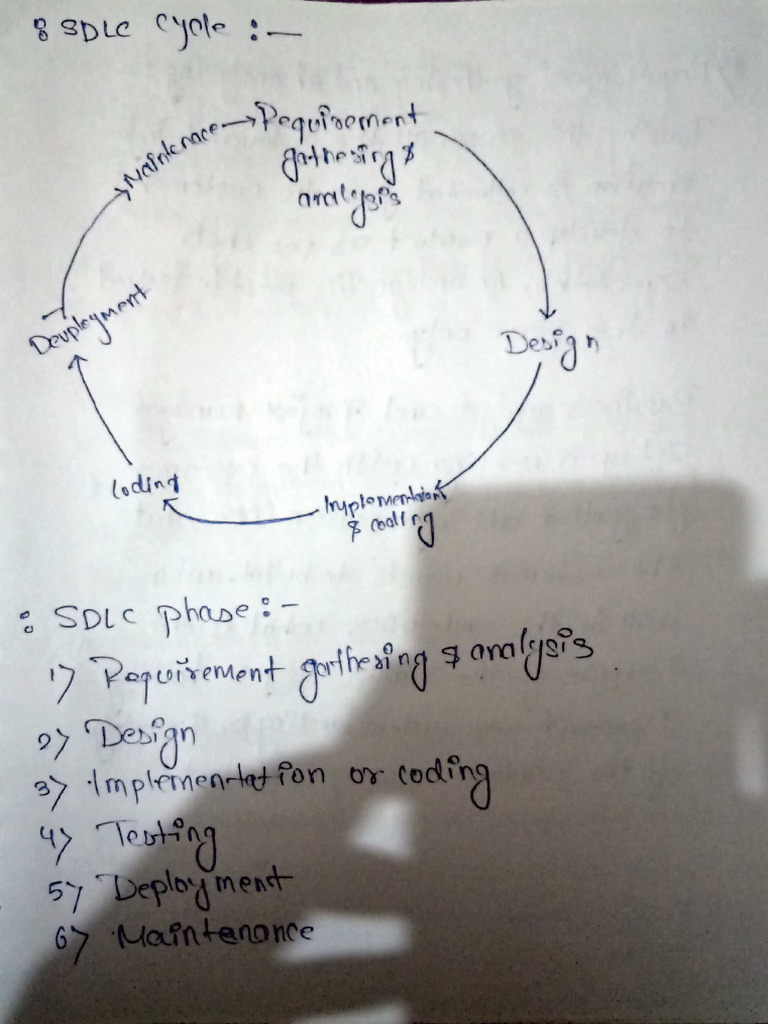 : SDLC Cycle :-
Maintenace
Requirement
gathering &
analysis
Design
Implementation
& coding
Coding
Deuployment
: SDLC phase :-
1) Requirement garthering & analysis
2) Design
3) Implementation or coding
4) Testing
5) Deployment
6) Maintenance